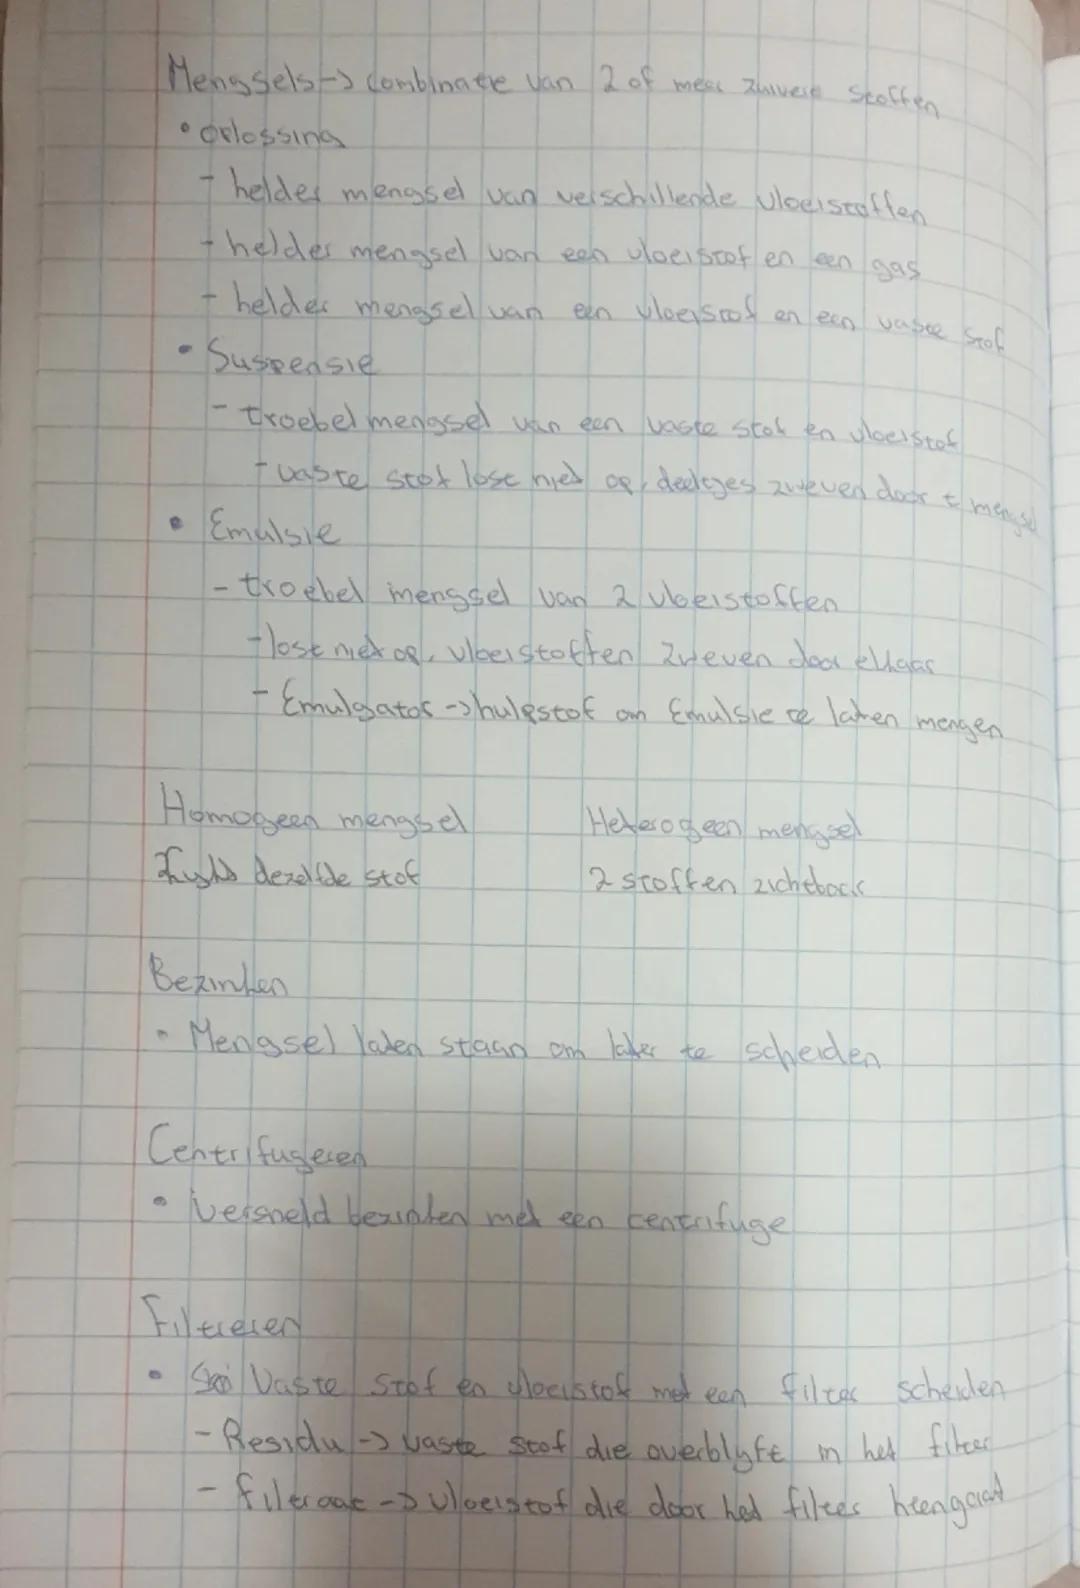 Mengsels -> Combinatie van 2 of meer zuivere stoffen
• oplossing
- helder mengsel van verschillende vloeistoffen
- helder mengsel van een vloeistof en een gas
- helder mengsel van een vloeistof en een vaste stof
• Suspensie
- troebel mengsel van een vaste stof en vloeistof
- vaste stof lost niet op, deeltjes zweven door t mengsel
• Emulsie
- troebel mengsel van 2 vloeistoffen
- lost niet op, vloeistoffen zweven door elkaar
- Emulgator -> hulpstof om Emulsie te laten mengen
Homogeen mengsel Heterogeen mengsel
dezelfde stof 2 stoffen zichtbaar
Bezinken
• Mengsel laten staan om later te scheiden
Centrifugeren
• versneld bezinken met een centrifuge
Filtreren
• Vaste stof en vloeistof met een filter scheiden
- Residu -> vaste stof die overblyft in het filter
- filtraat -> vloeistof die door het filter heengaat